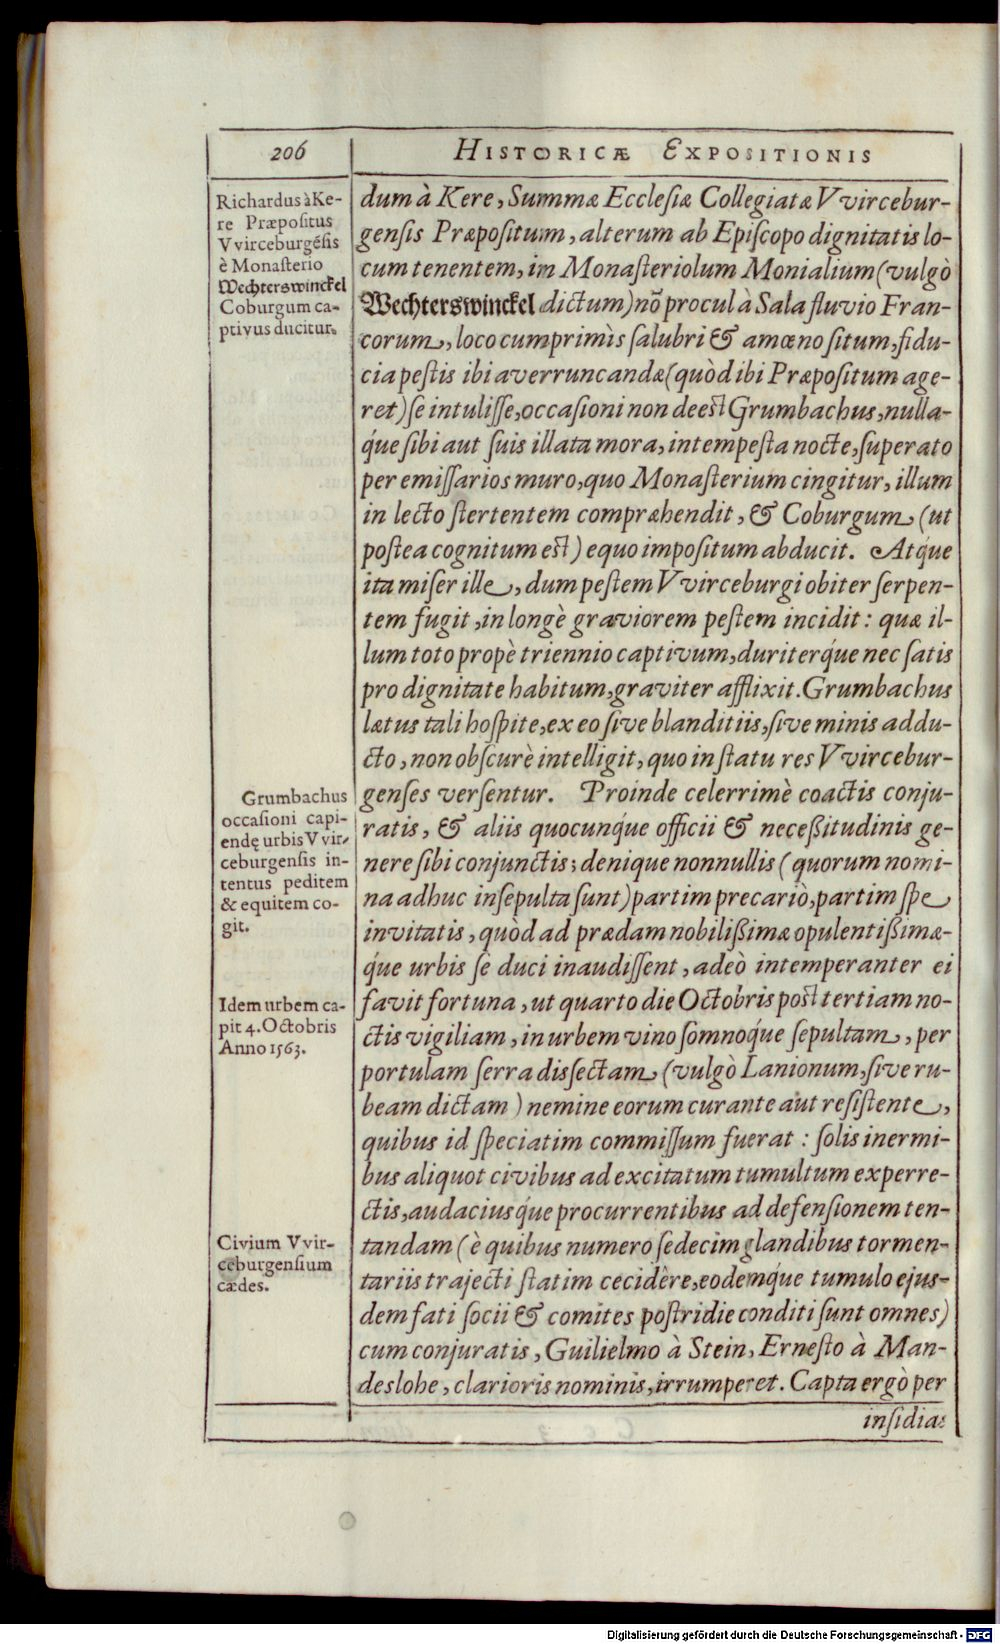 206
HISTORICÆ EXPOSITIONIS
Richardus à Ke-
re Præpositus
Vvirceburgẽsis
è Monasterio
Wechterswinckel
Coburgum ca-
ptivus ducitur.
dum à Kere, Summæ Ecclesiæ Collegiatæ Vvircebur-
gensis Præpositum, alterum ab Episcopo dignitatis lo-
cum tenentem, in Monasteriolum Monialium (vulgò
Wechterswinckel dictum) nõ procul à Sala fluvio Fran-
corum, loco cumprimìs salubri & amœno situm, fidu-
cia pestis ibi averruncandæ (quòd ibi Præpositum age-
ret) se intulisse, occasioni non deest Grumbachus, nulla-
q́ue sibi aut suis illata mora, intempesta nocte, superato
per emissarios muro, quo Monasterium cingitur, illum
in lecto stertentem compræhendit, & Coburgum (ut
postea cognitum est) equo impositum abducit. Atq́ue
ita miser ille, dum pestem Vvirceburgi obiter serpen-
tem fugit, in longè graviorem pestem incidit: quæ il-
lum toto propè triennio captivum, duriterq́ue nec satis
pro dignitate habitum, graviter afflixit. Grumbachus
lætus tali hospite, ex eo sive blanditiis, sive minis addu-
cto, non obscurè intelligit, quo in statu res Vvircebur-
genses versentur. Proinde celerrimè coactis conju-
ratis, & aliis quocunq́ue officii & necessitudinis ge-
nere sibi conjunctis; denique nonnullis (quorum nomi-
na adhuc insepulta sunt) partim precariò, partim spe
invitatis, quod ad prædam nobilißimæ opulentißimæ-
q́ue urbis se duci inaudissent, adeò intemperanter ei
favit fortuna, ut quarto die Octobris post tertiam no-
ctis vigiliam, in urbem vino somnoq́ue sepultam, per
portulam serra dissectam (vulgò Lanionum, sive ru-
beam dictam) nemine eorum curante aut resistente,
quibus id speciatim commissum fuerat: solis inermi-
bus aliquot civibus ad excitatum tumultum experre-
ctis, audaciusq́ue procurrentibus ad defensionem ten-
tandam (è quibus numero sedecim glandibus tormen-
tariis trajecti statim cecidère, eodemq́ue tumulo ejus-
dem fati socii & comites postridie conditi sunt omnes)
cum conjuratis, Guilielmo à Stein, Ernesto à Man-
deslohe, clarioris nominis, irrumperet. Capta ergò per
Grumbachus
occasioni capi-
endę urbis Vvir-
ceburgensis in-
tentus peditem
& equitem co-
git.
Idem urbem ca-
pit 4. Octobris
Anno 1563.
Civium Vvir-
ceburgensium
cædes.
insidias
Digitalisierung gefördert durch die Deutsche Forschungsgemeinschaft - DFG